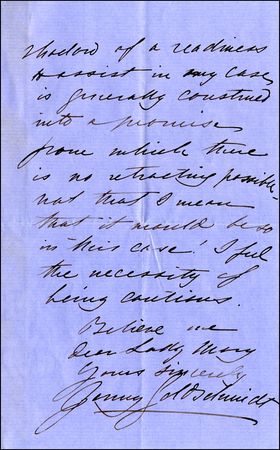 shadow of a readiness
to assist in any case
is generally construed
into a promise
from which there
is no retracting possible-
not that I mean
that it would be so
in this case! I feel
the necessity of
being cautious.
Believe me
dear Lady Mary
Yours sincerely
Jenny Goldschmidt